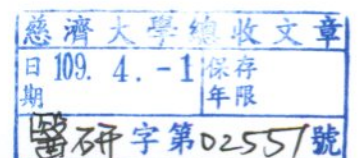 慈濟大學總收文章
日期 109. 4. -1 保存年限
醫研字第02551號